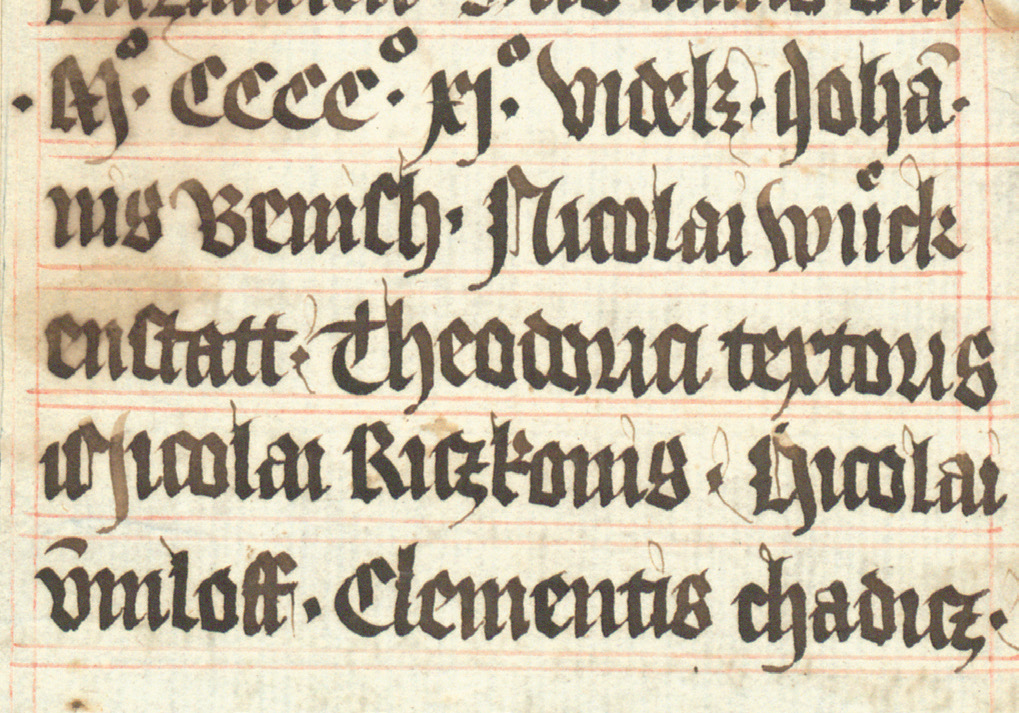 · Mº · CCCCº · xjº · videlicꝫ · Johā ·
nis Benisch · Nicolai Wuͤck
enstatt · Theodorici textoris
Nicolai Riczkonis · Nicolai
v̄miloff · Clementis chadicz ·